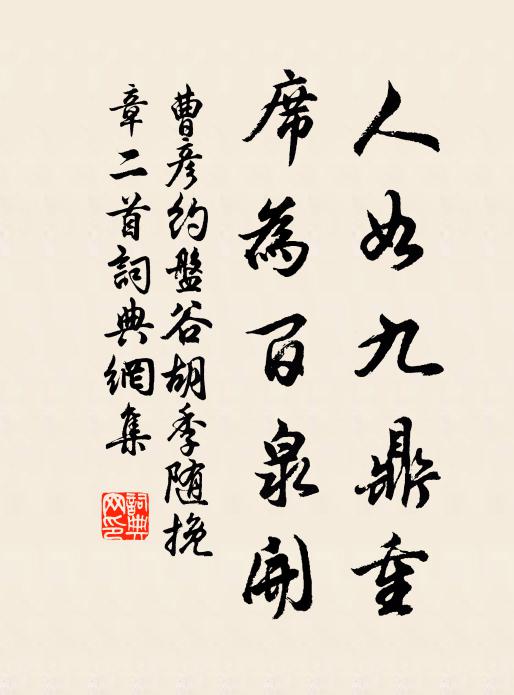 人如九鼎重
席為百泉開
曹彦約盤谷胡季随挽
章二首詞典網集
詞典網印